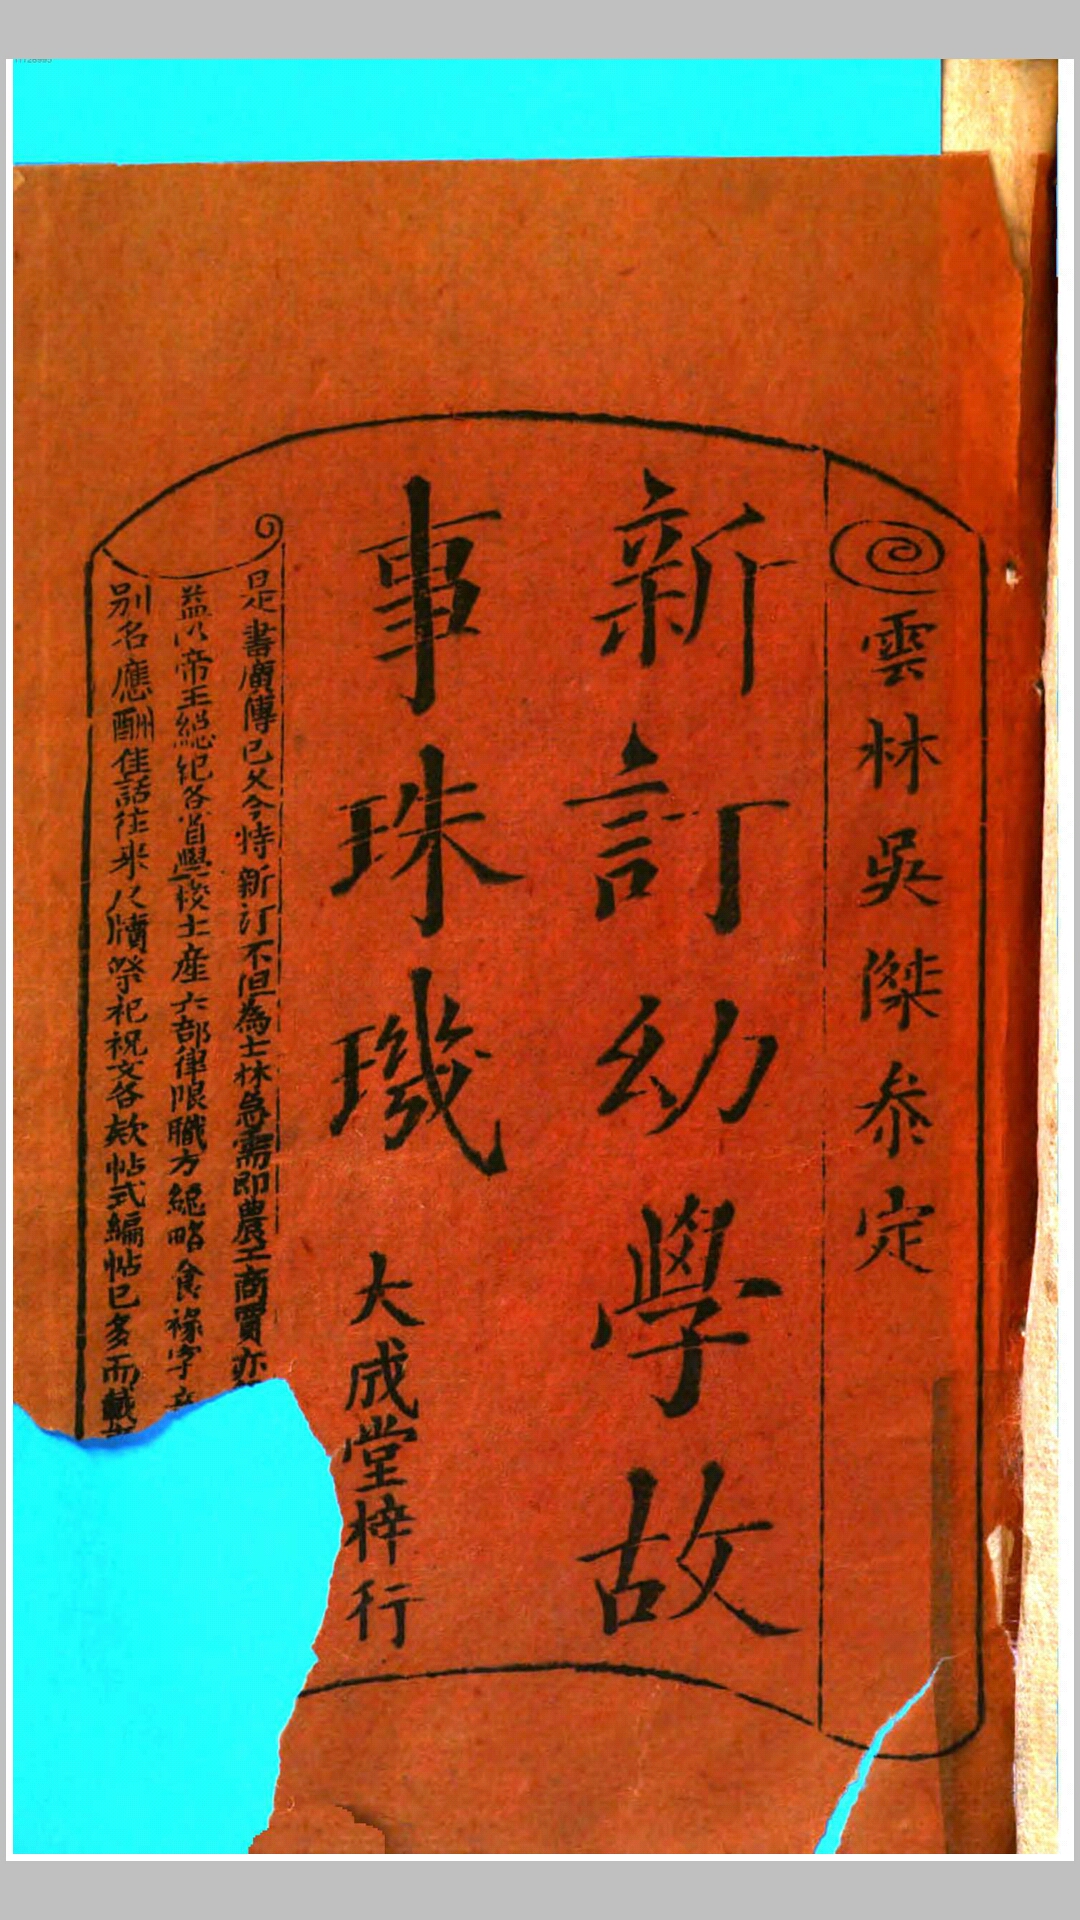 雲林吳傑叅定
新訂幼學故
事珠璣
大成堂梓行
是書廣傳已久今特新訂不但為士林急需即農工商賈亦
益以帝王總紀各省學校土産六部律限職方總略食祿字
別名應酬佳話往來尺牘祭祀祝文各款帖式編帖已多而載